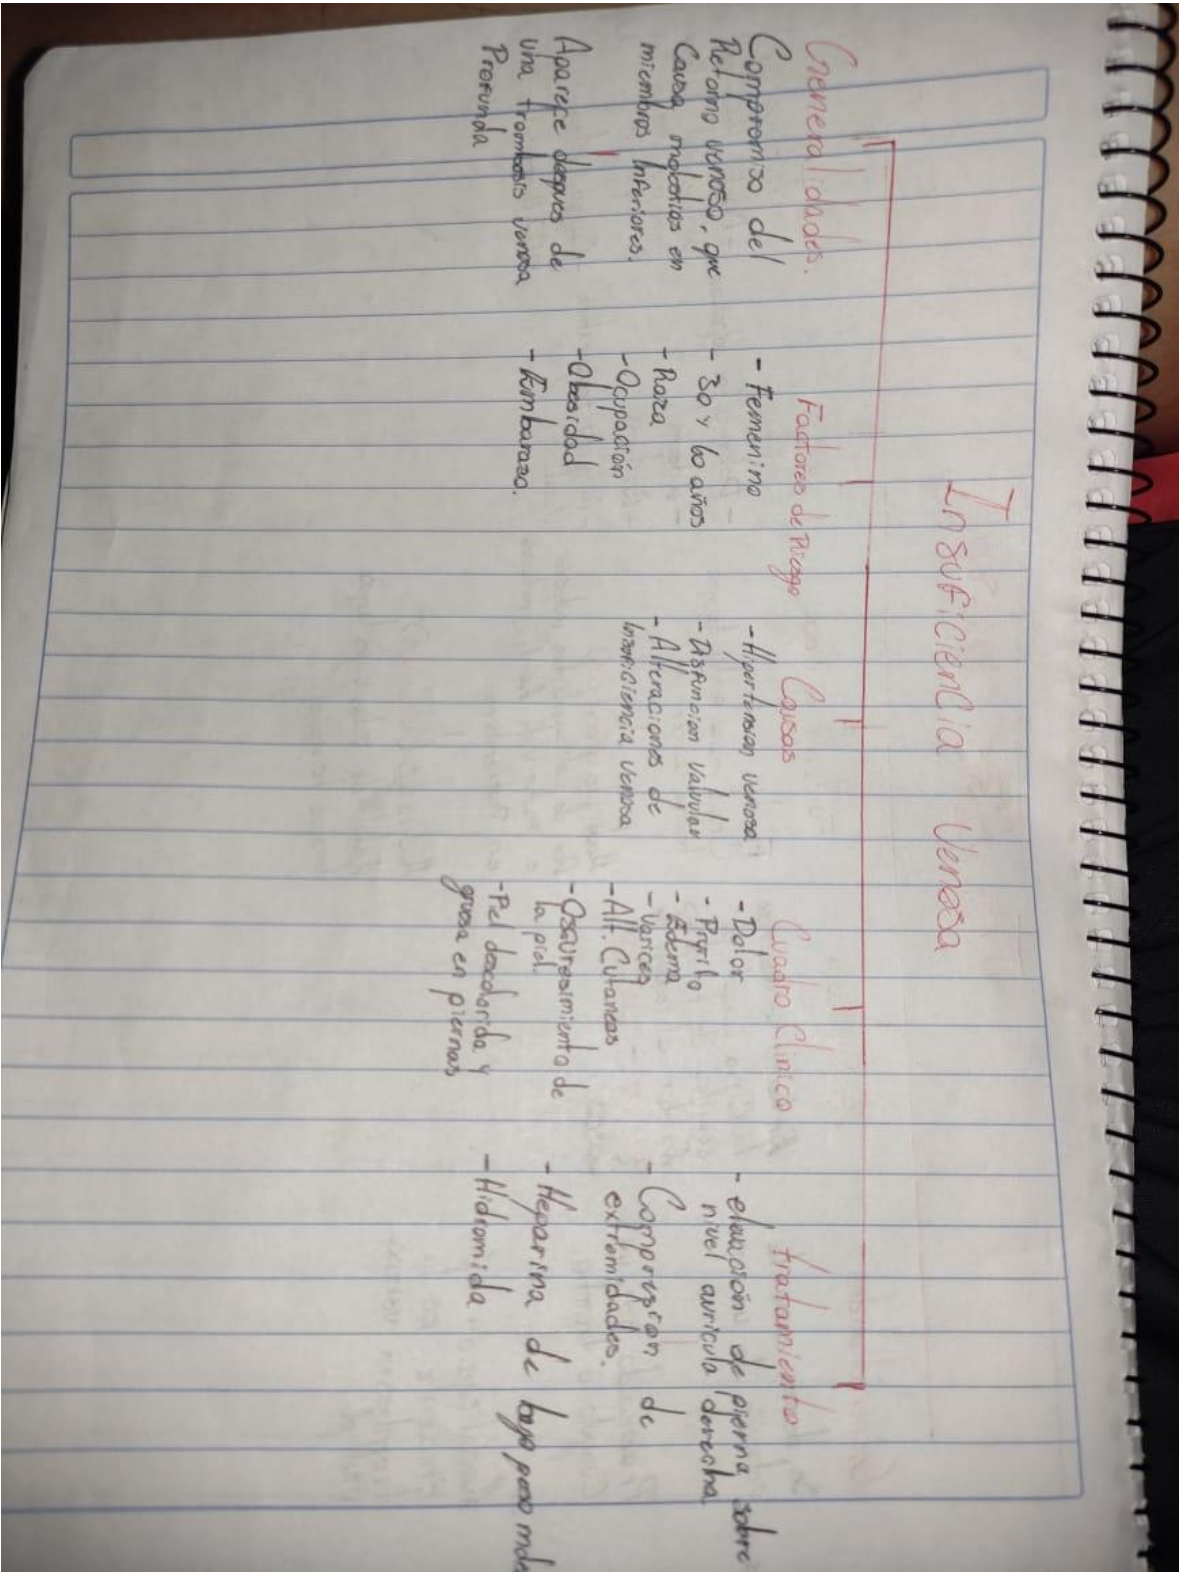 Insuficiencia Venosa
Generalidades.
Compromiso del
Retorno venoso, que
Causa molestias en
miembros Inferiores.
Aparece despues de
una trombosis venosa
Profunda
Factores de Riesgo
- Femenino
- 30 y 60 años
- Raza
- Ocupación
- Obesidad
- Embarazo.
Causas
- Hipertension venosa
- Disfuncion valvular
- Alteraciones de
Insuficiencia venosa
Cuadro Clinico
- Dolor
- Prurito
- Edema
- Varices
- Alt. Cutaneas
- Oscuresimiento de
la piel.
- Piel descolorida y
gruesa en piernas
tratamiento
- elevación de pierna sobre
nivel auricula derecha.
- Compresion de
extremidades.
- Heparina de bajo peso
- Hidromida